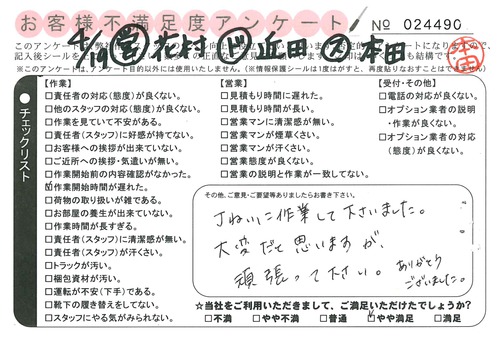 お客様不満足度アンケート
No 024490
4/19 花村 近田 本田
【作業】
□責任者の対応(態度)が良くない。
□他のスタッフの対応(態度)が良くない。
□作業を見ていて不安がある。
□責任者(スタッフ)に好感が持てない。
□お客様への挨拶が出来ていない。
□ご近所への挨拶・気遣いが無い。
□作業開始前の内容確認がなかった。
☑作業開始時間が遅れた。
□荷物の取り扱いが雑である。
□お部屋の養生が出来ていない。
□作業時間が長すぎる。
□責任者(スタッフ)に清潔感が無い。
□責任者(スタッフ)が汗くさい。
□トラックが汚い。
□梱包資材が汚い。
□運転が不安(下手)である。
□靴下の履き替えをしてない。
□スタッフにやる気がみられない。
【営業】
□見積もり時間に遅れた。
□見積もり時間が長い。
□営業マンに清潔感が無い。
□営業マンが煙草くさい。
□営業マンが汗くさい。
□営業態度が良くない。
□営業の説明と作業が一致してない。
【受付・その他】
□電話の対応が良くない。
□オプション業者の説明
・作業が良くない。
□オプション業者の対応
(態度)が良くない。
チェックリスト
その他、ご意見・ご要望等ありましたらお書き下さい。
丁ねいに作業して下さいました。
大変だと思いますが、
頑張って下さい。
ありがとう
ございました。
☆当社をご利用いただきまして、ご満足いただけたでしょうか?
□不満 □やや不満 □普通 ☑やや満足 □満足